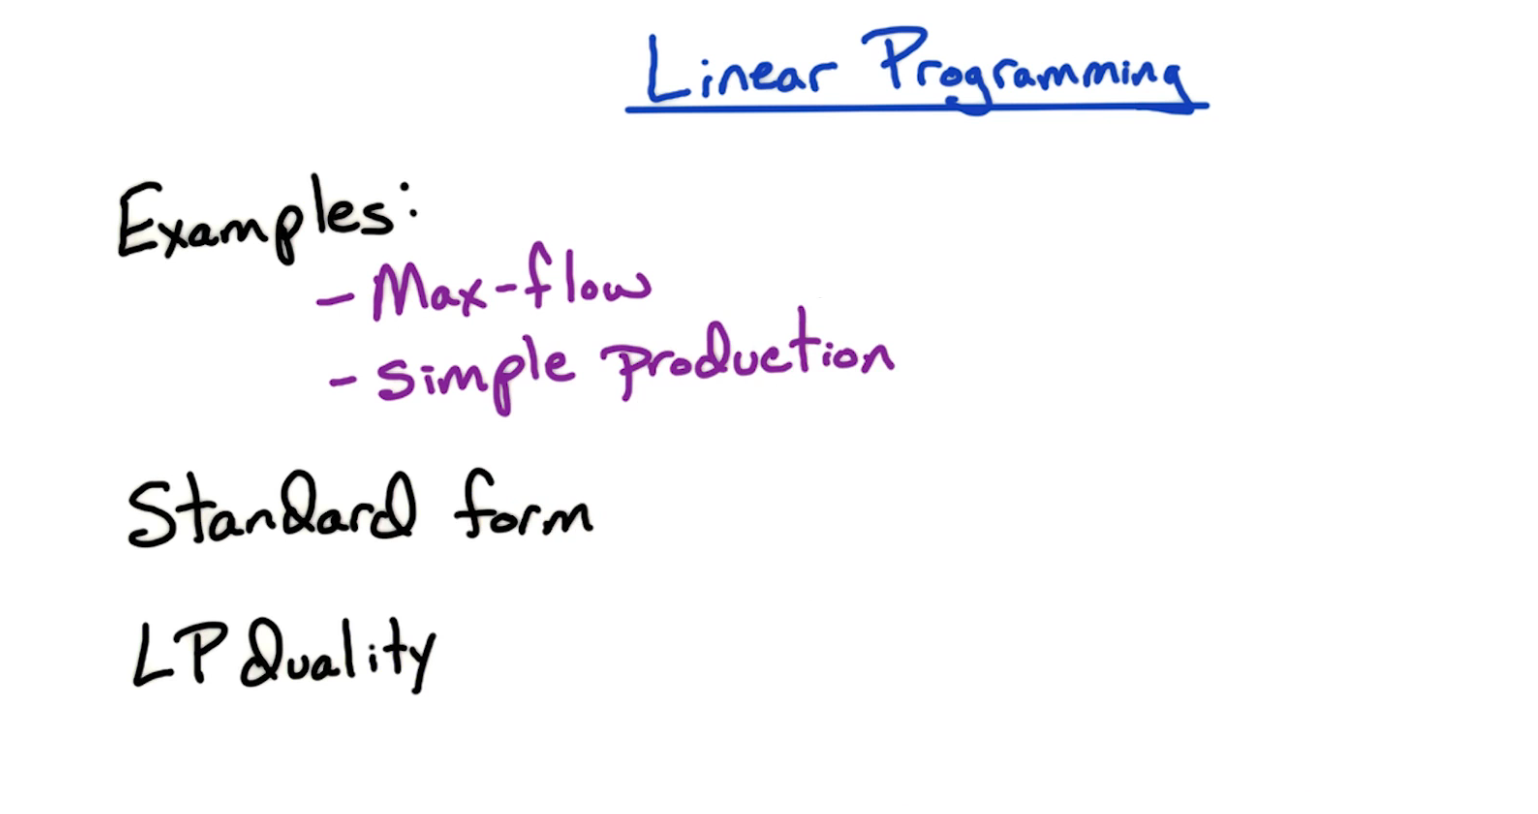 Linear Programming
Examples:
- Max-flow
- simple production
Standard form
LP duality